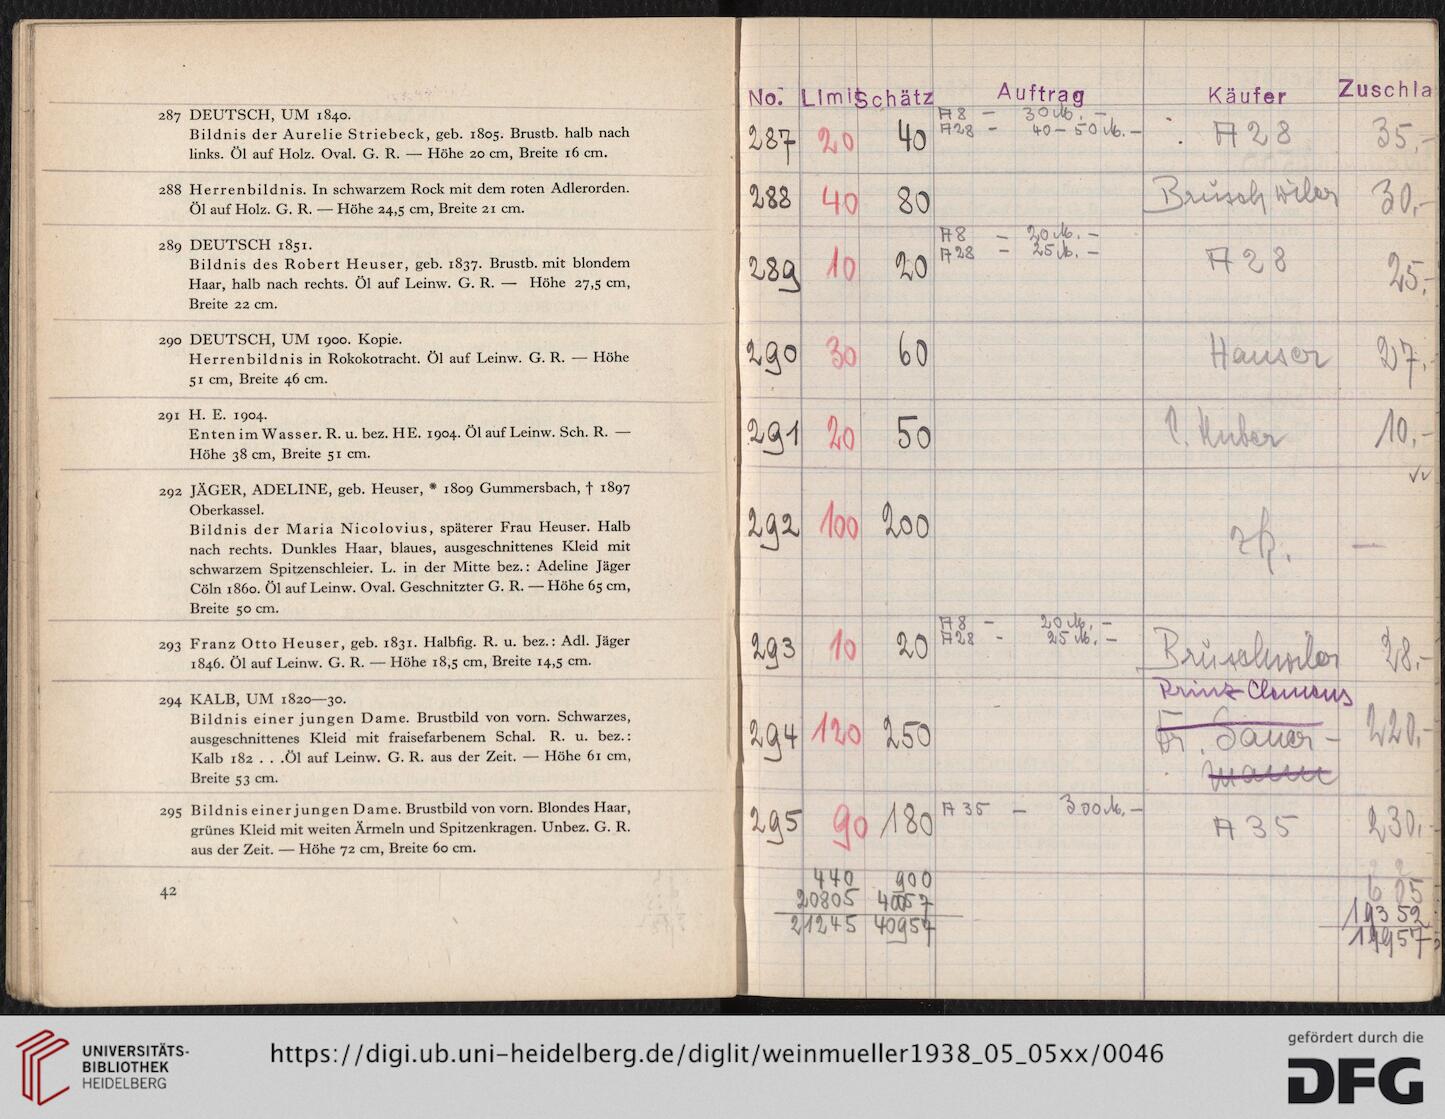 287 DEUTSCH, UM 1840.
Bildnis der Aurelie Striebeck, geb. 1805. Brustb. halb nach
links. Öl auf Holz. Oval. G. R. — Höhe 20 cm, Breite 16 cm.
288 Herrenbildnis. In schwarzem Rock mit dem roten Adlerorden.
Öl auf Holz. G. R. — Höhe 24,5 cm, Breite 21 cm.
289 DEUTSCH 1851.
Bildnis des Robert Heuser, geb. 1837. Brustb. mit blondem
Haar, halb nach rechts. Öl auf Leinw. G. R. — Höhe 27,5 cm,
Breite 22 cm.
290 DEUTSCH, UM 1900. Kopie.
Herrenbildnis in Rokokotracht. Öl auf Leinw. G. R. — Höhe
51 cm, Breite 46 cm.
291 H. E. 1904.
Enten im Wasser. R. u. bez. HE. 1904. Öl auf Leinw. Sch. R. —
Höhe 38 cm, Breite 51 cm.
292 JÄGER, ADELINE, geb. Heuser, * 1809 Gummersbach, † 1897
Oberkassel.
Bildnis der Maria Nicolovius, späterer Frau Heuser. Halb
nach rechts. Dunkles Haar, blaues, ausgeschnittenes Kleid mit
schwarzem Spitzenschleier. L. in der Mitte bez.: Adeline Jäger
Cöln 1860. Öl auf Leinw. Oval. Geschnitzter G. R. — Höhe 65 cm,
Breite 50 cm.
293 Franz Otto Heuser, geb. 1831. Halbfig. R. u. bez.: Adl. Jäger
1846. Öl auf Leinw. G. R. — Höhe 18,5 cm, Breite 14,5 cm.
294 KALB, UM 1820—30.
Bildnis einer jungen Dame. Brustbild von vorn. Schwarzes,
ausgeschnittenes Kleid mit fraisefarbenem Schal. R. u. bez.:
Kalb 182 . . .Öl auf Leinw. G. R. aus der Zeit. — Höhe 61 cm,
Breite 53 cm.
295 Bildnis einer jungen Dame. Brustbild von vorn. Blondes Haar,
grünes Kleid mit weiten Ärmeln und Spitzenkragen. Unbez. G. R.
aus der Zeit. — Höhe 72 cm, Breite 60 cm.
42
No. Limit Schätz Auftrag Käufer Zuschla
A 8 — 30 M. —
A 28 — 40 — 50 M. —
287 20 40 A 28 35,-
288 40 80 Brüschwiler 30,-
A 8 — 20 M. —
A 28 — 25 M. —
289 10 20 A 28 25,-
290 30 60 Hauser 27,-
291 20 50 C. Huber 10,-
292 100 200 zk. —
A 8 — 20 M. —
A 28 — 25 M. —
293 10 20 Brüschwiler 28,-
Prinz Clemens
294 120 250 Dr. Sauer- 220,-
mann
295 90 180 A 35 — 300 M. — A 35 230,-
440 900 605
20805 40057 19352
21245 40957 19957
UNIVERSITÄTS-
BIBLIOTHEK
HEIDELBERG
https://digi.ub.uni-heidelberg.de/diglit/weinmueller1938_05_05xx/0046
gefördert durch die
DFG